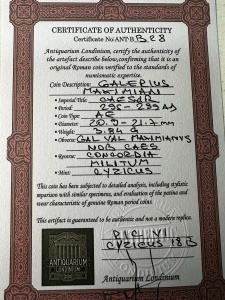 CERTIFICATE OF AUTHENTICITY
Certificate No/ANT-R B28
Antiquarium Londinium, certify the authenticity of
the artefact describe below, confirming that it is an
original Roman coin verified to the standards of
numismatic expertise.
Coin Description: GALERIUS
MAXIMIAN
• Imperial Title: CAESAR
• Period: 295-299 AD
• Coin Type: AE
• Diameter: 20.9-21.7 mm
• Weight: 3.84 g
• Obverse: GAL VAL MAXIMIANUS
NOB CAES
• Reverse: CONCORDIA
MILITUM
• Mint: CYZICUS
This coin has been subjected to detailed analysis, including stylistic
comparison with similar specimens, and evaluation of the patina and
wear characteristic of genuine Roman period coins.
This artifact is guaranteed to be authentic and not a modern replica.
RIC VI
CYZICUS 18B
ANTIQUARIUM
LONDINIUM
Antiquarium Londinium